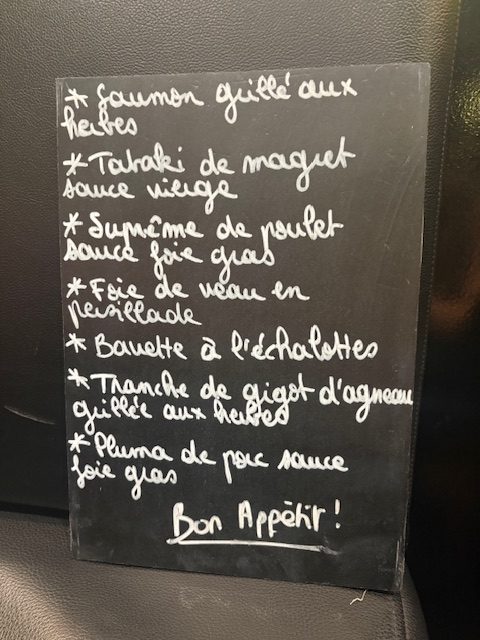 * Saumon grillé aux
herbes
* Tataki de magret
sauce vierge
* Suprême de poulet
sauce foie gras
* Foie de veau en
persillade
* Bavette à l'échalottes
* Tranche de gigot d'agneau
grillée aux herbes
* Pluma de porc sauce
foie gras
Bon Appétit !